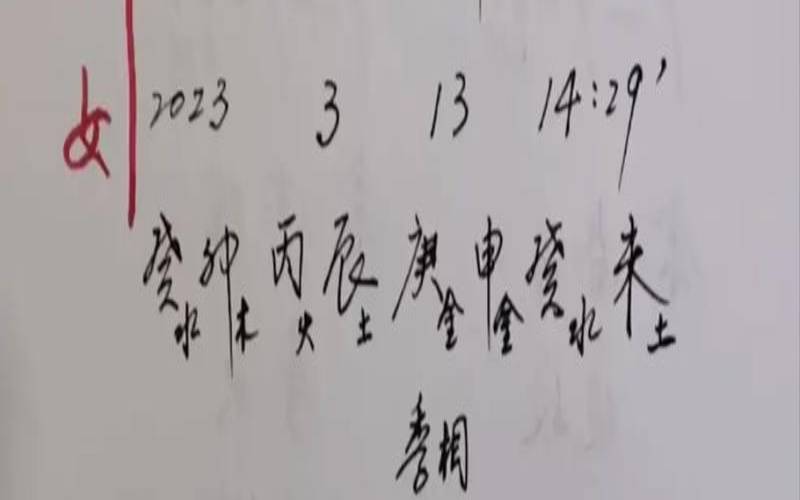 女
2023 3 13 14:29'
癸卯丙辰庚申癸未
水木火土金金水土
季相